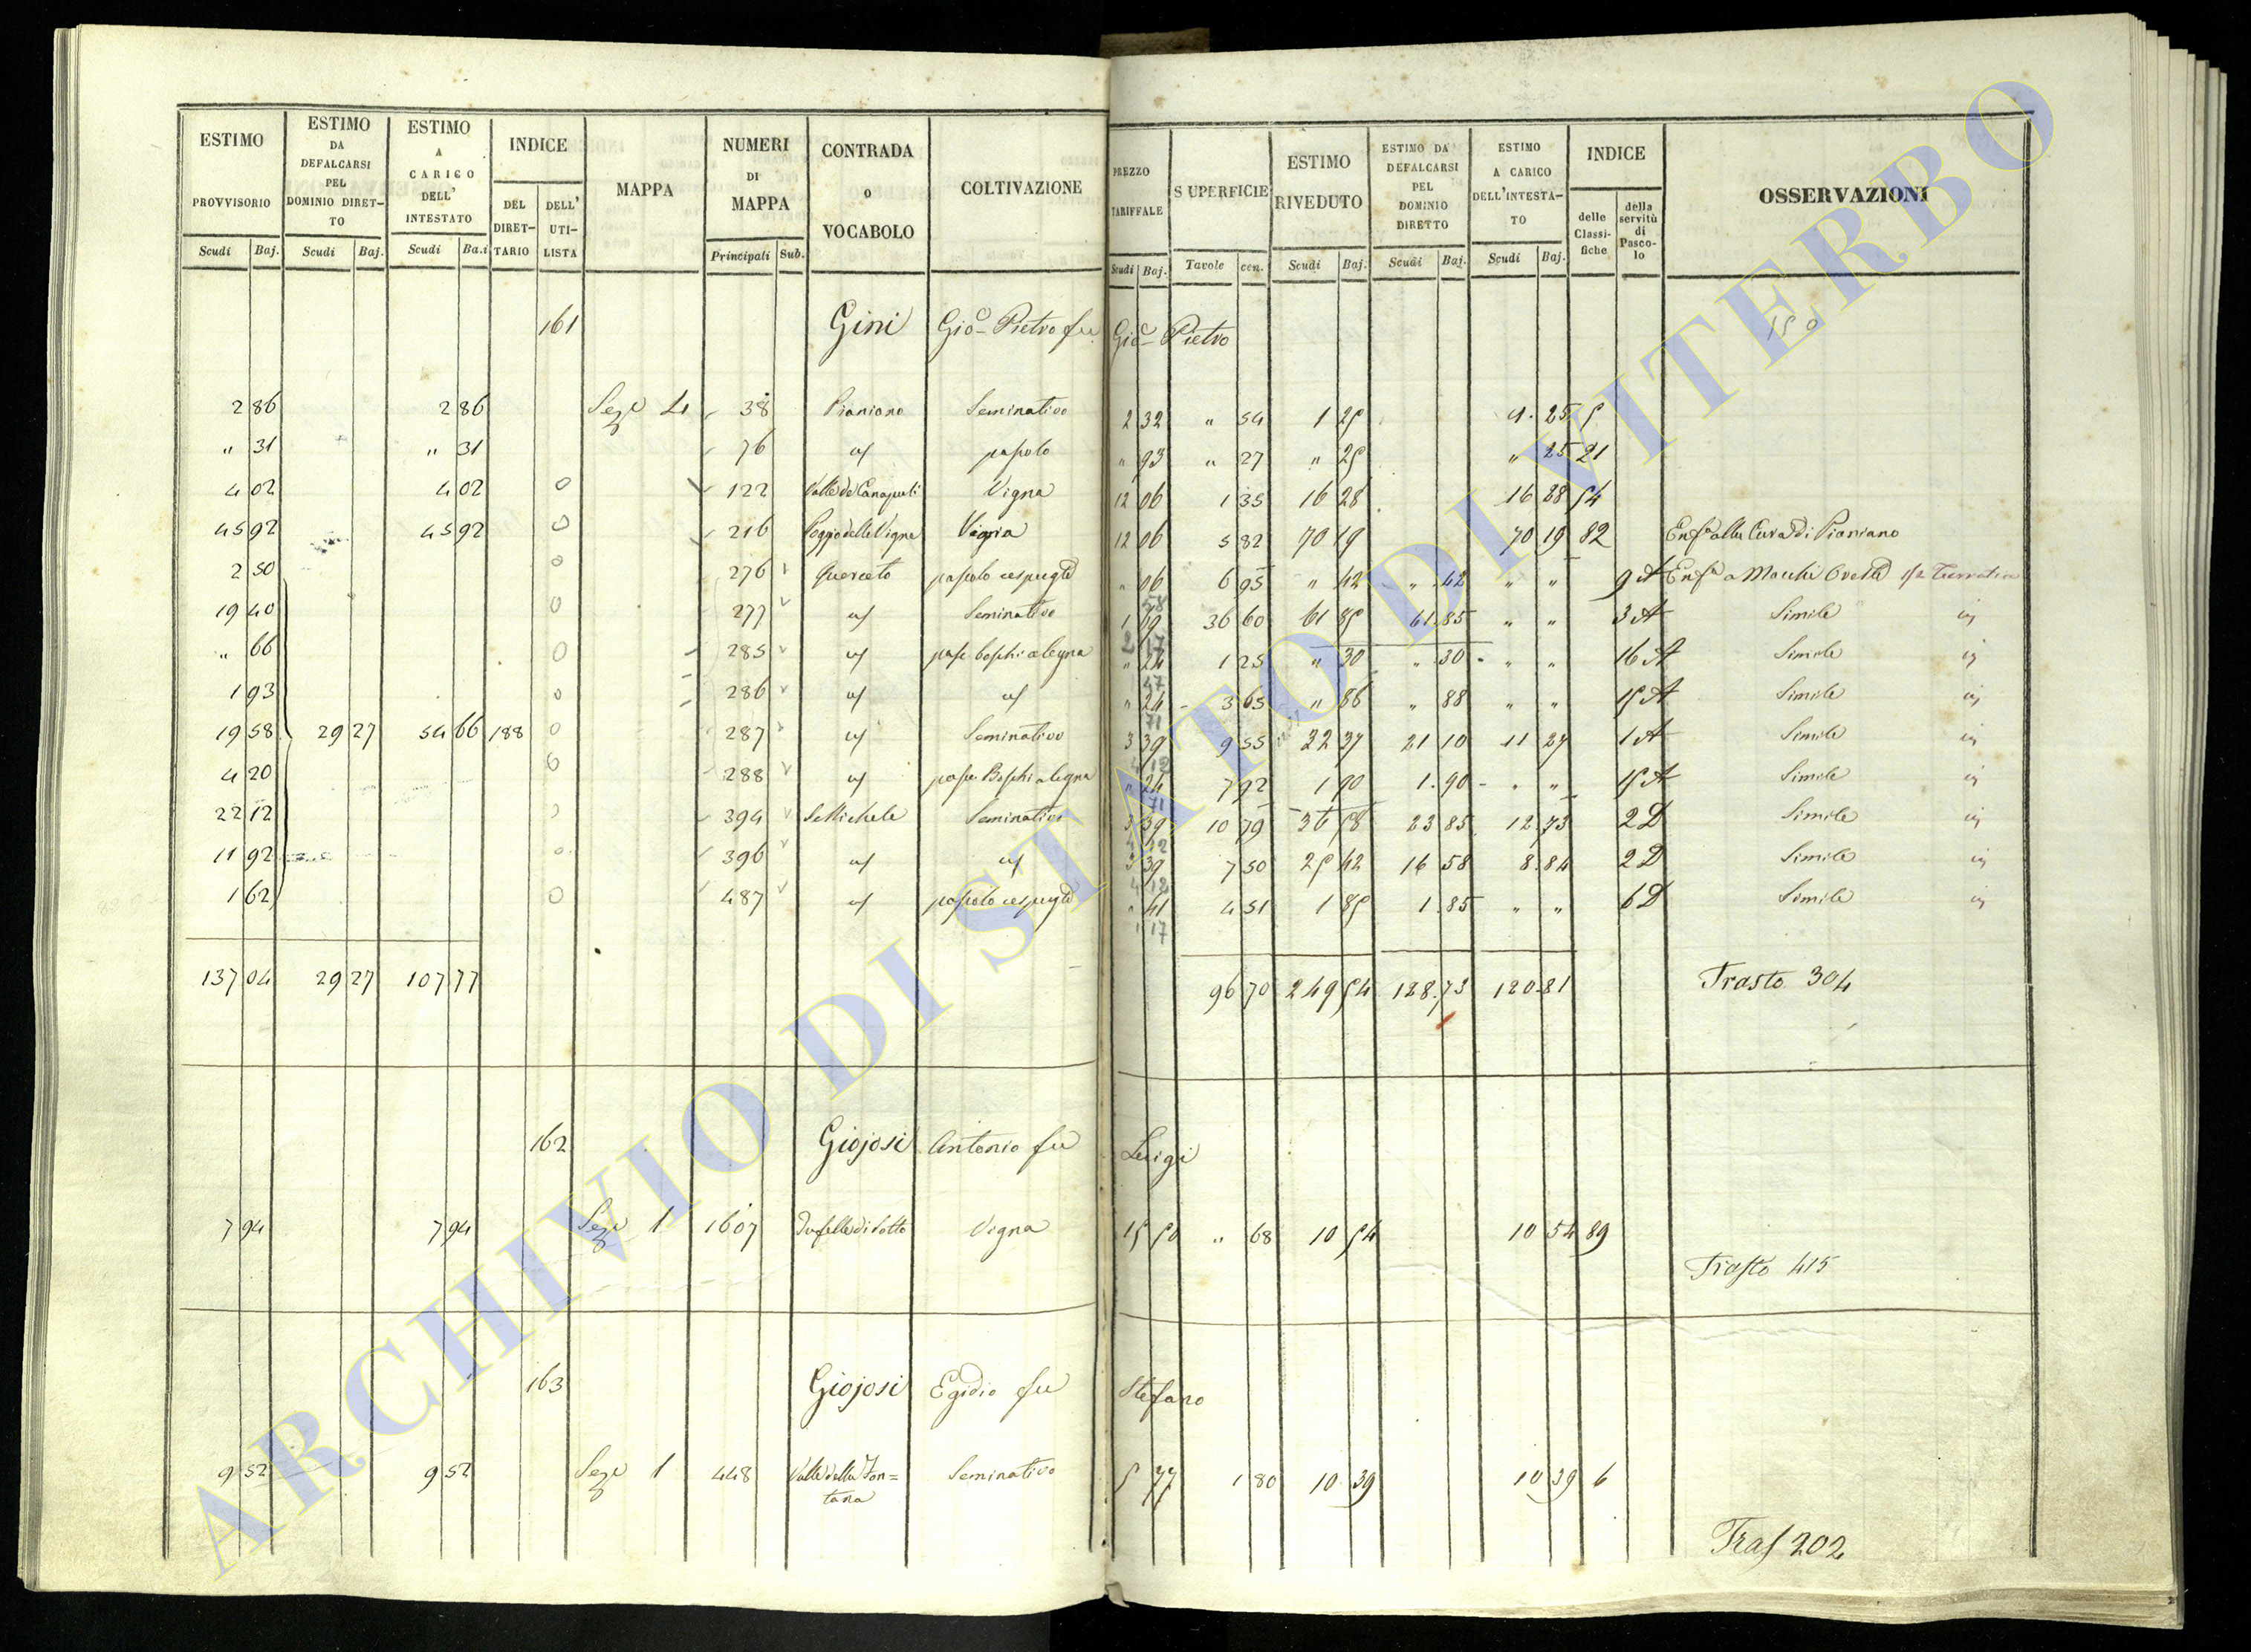 ESTIMO PROVVISORIO | ESTIMO DA DEFALCARSI PEL DOMINIO DIRET-TO | ESTIMO A CARICO DELL' INTESTATO | INDICE | MAPPA | NUMERI DI MAPPA | CONTRADA o VOCABOLO | COLTIVAZIONE | PREZZO TARIFFALE | SUPERFICIE | ESTIMO RIVEDUTO | ESTIMO DA DEFALCARSI PEL DOMINIO DIRETTO | ESTIMO A CARICO DELL'INTESTA-TO | INDICE | OSSERVAZIONI
Scudi | Baj. | Scudi | Baj. | Scudi | Ba.i | DEL DIRET-TARIO | DELL' UTI-LISTA | Principali | Sub. | Scudi | Baj. | Tavole | cen. | Scudi | Baj. | Scudi | Baj. | Scudi | Baj. | delle Classi-fiche | della servitù di Pasco-lo
161 Gini Gio- Pietro fu Gio- Pietro 150
2 86 2 86 Seze 4 38 Pianiano Seminativo 2 32 " 54 1 25 1. 25 5
" 31 " 31 76 " pascolo " 93 " 27 " 25 " 25 21
4 02 4 02 0 122 Valle de Canapuli Vigna 12 06 1 35 16 28 16 28 54
45 92 45 92 0 216 Poggio delle Vigne Vigna 12 06 5 82 70 19 70 19 82 Enfa alla Cura di Pianiano
2 50 0 276 Querceto pascolo cespugto " 06 6 95 " 42 " 42 " " 9 A Enfa a Macchi
19 40 0 277 Seminativo 1 69 36 60 61 85 61 85 " " 3 A Simile
" 66 0 285 pasc boschi a legna " 24 1 25 " 30 " 30 " " 16 A Simile
1 93 0 286 " 24 3 65 " 86 " 88 " " 15 A Simile
19 58 29 27 54 66 188 0 287 Seminativo 3 39 9 55 32 37 21 10 11 27 1 A Simile
4 20 0 288 pasc Boschi a legna " 24 7 92 1 90 1.90 " " 15 A Simile
22 12 394 S Michele Seminativo 3 39 10 79 36 58 23 85 12 73 2 D Simile
11 92 396 3 39 7 50 25 42 16 58 8.84 2 D Simile
1 62 0 487 pascolo cespugto " 41 4 51 1 85 1.85 " " 6 D Simile
137 04 29 27 107 77 96 70 249 54 128.73 120.81 Trasto 304
162 Giojosi Antonio fu Luigi
7 94 7 94 Seze 1 1607 di sotto Vigna 15 50 " 68 10 54 10 54 89
Trasto 415
163 Giojosi Egidio fu Stefano
9 52 9 52 Seze 1 448 Valle della Fon= Seminativo 5 77 1 80 10 39 10 39 6
tana
Tras 202
ARCHIVIO DI STATO DI VITERBO